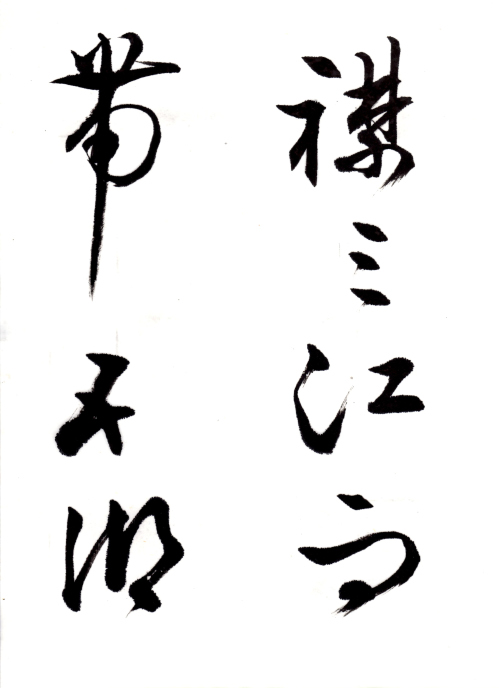 襟三江而
帶五湖